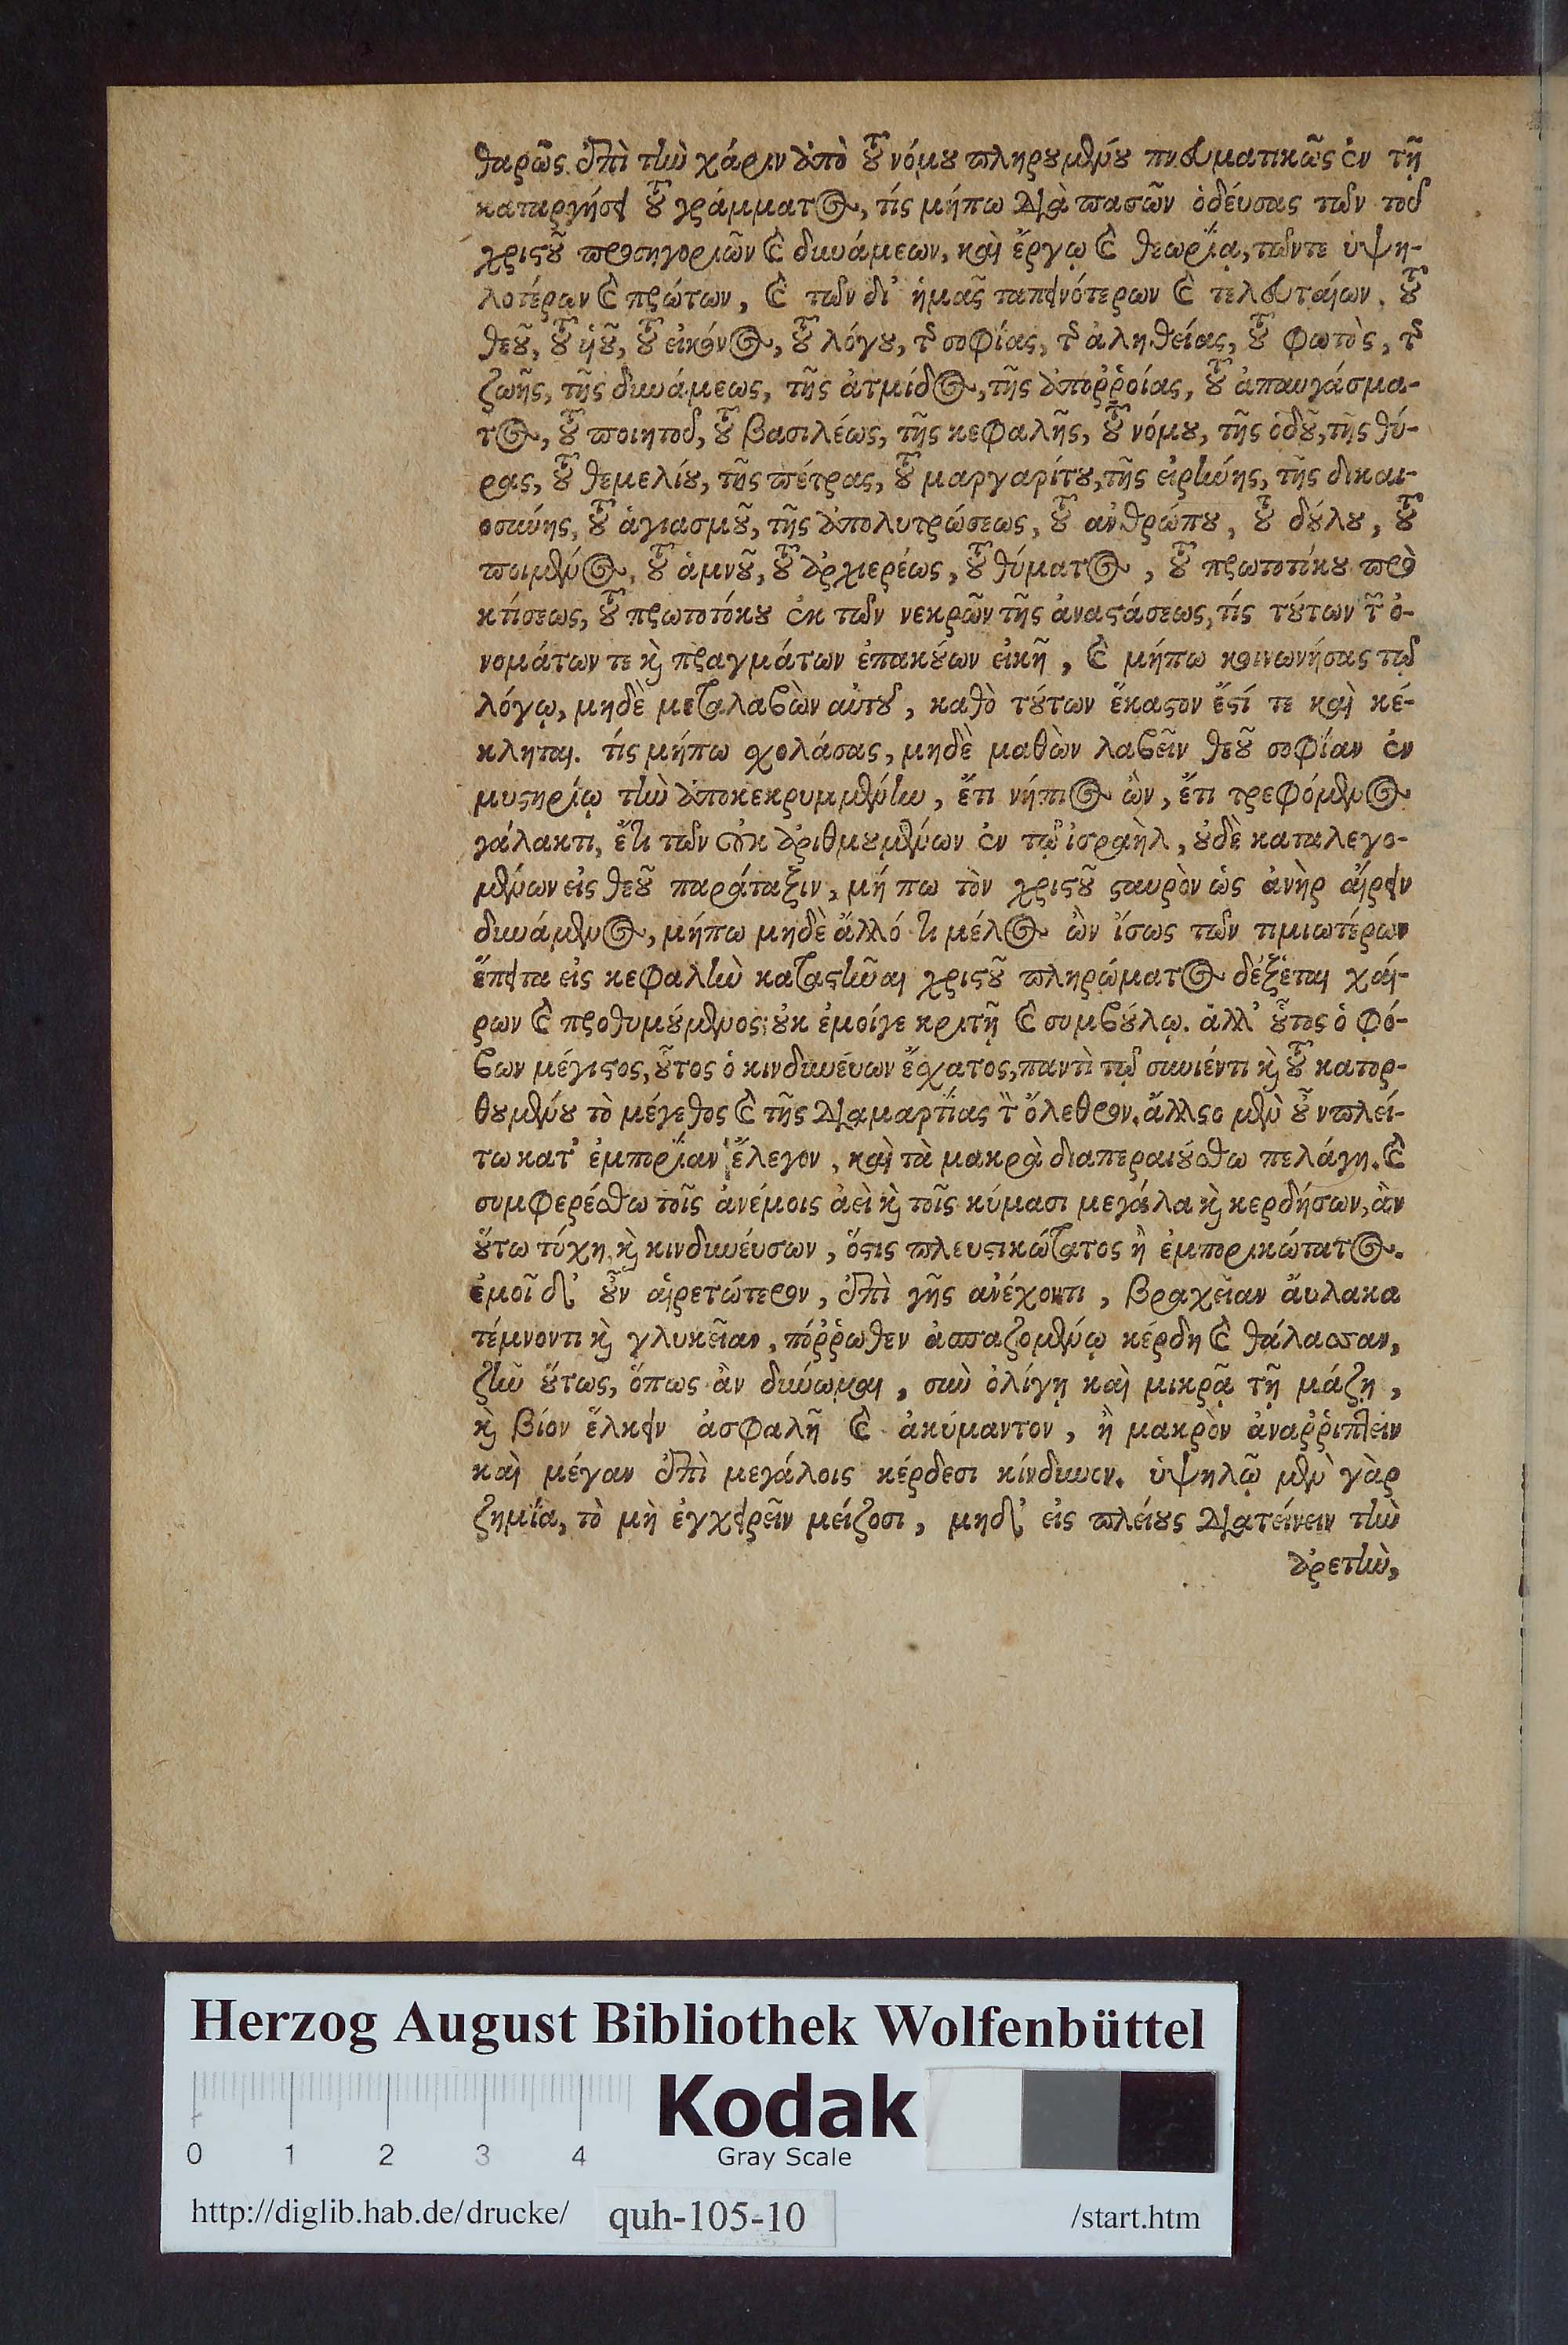 θαρῶς ἐπὶ τὴν χάριν ἀπὸ τοῦ νόμου πληρουμένου πνευματικῶς ἐν τῇ
καταργήσει τοῦ γράμματος, τίς μήπω διὰ πασῶν ὁδεύσας τῶν τοῦ
χριστοῦ προσηγοριῶν καὶ δυνάμεων, καὶ ἔργῳ καὶ θεωρίᾳ, τῶν τε ὑψη-
λοτέρων καὶ πρώτων, καὶ τῶν δι' ἡμᾶς ταπεινότερων καὶ τελευταίων. τοῦ
θεοῦ, τοῦ ὑιοῦ, τοῦ εἰκόνος, τοῦ λόγου, τῆς σοφίας, τῆς ἀληθείας, τοῦ φωτὸς, τῆς
ζωῆς, τῆς δυνάμεως, τῆς ἀτμίδος, τῆς ἀποῤῥοίας, τοῦ ἀπαυγάσμα-
τος, τοῦ ποιητοῦ, τοῦ βασιλέως, τῆς κεφαλῆς, τοῦ νόμου, τῆς ὁδοῦ, τῆς θύ-
ρας, τοῦ θεμελίου, τῆς πέτρας, τοῦ μαργαρίτου, τῆς εἰρήνης, τῆς δικαι-
οσύνης, τοῦ ἁγιασμοῦ, τῆς ἀπολυτρώσεως, τοῦ ανθρώπου, τοῦ δούλου, τοῦ
ποιμένος, τοῦ ἀμνοῦ, τοῦ ἀρχιερέως, τοῦ θύματος, τοῦ πρωτοτόκου πρὸ
κτίσεως, τοῦ πρωτοτόκου ἐκ τῶν νεκρῶν τῆς ἀναστάσεως, τίς τούτων τῶν ὀ-
νομάτων τε καὶ πραγμάτων ἐπακούων εἰκῆ, καὶ μήπω κοινωνήσας τῷ
λόγῳ, μηδὲ μεταλαβὼν αὐτοῦ, καθὸ τούτων ἕκαστον ἔστί τε καὶ κέ-
κληται. τίς μήπω σχολάσας, μηδὲ μαθὼν λαβεῖν θεοῦ σοφίαν ἐν
μυστηρίῳ τὴν ἀποκεκρυμμένην, ἔτι νήπιος ὢν, ἔτι τρεφόμενος
γάλακτι, ἔτι τῶν οὐκ ἀριθμουμένων ἐν τῷ ἰσραὴλ, οὐδὲ καταλεγο-
μένων εἰς θεοῦ παράταξιν, μή πω τὸν χριστοῦ σταυρὸν ὡς ἀνὴρ αἴρειν
δυνάμενος, μήπω μηδὲ ἄλλό τι μέλος ὢν ἴσως τῶν τιμιωτέρων
ἔπειτα εἰς κεφαλὴν καταστῆναι χριστοῦ πληρώματος δέξεται χαί-
ρων καὶ προθυμούμενος; οὐκ ἐμοίγε κριτῇ καὶ συμβούλῳ. ἀλλ' οὗτος ὁ φό-
βων μέγιστος, οὗτος ὁ κινδυνέυων ἔσχατος, παντὶ τῷ συνιέντι καὶ τοῦ κατορ-
θουμένου τὸ μέγεθος καὶ τῆς διαμαρτίας τὸν ὄλεθρον. ἄλλος μὲν οὖν πλεί-
τω κατ' ἐμπορίαν ἔλεγον, καὶ τὰ μακρὰ διαπεραιούσθω πελάγη. καὶ
συμφερέσθω τοῖς ἀνέμοις ἀεὶ καὶ τοῖς κύμασι μεγάλα καὶ κερδήσων, ἂν
οὕτω τύχῃ, καὶ κινδυνέυσων, ὅστις πλευστικώτατος ἢ ἐμπορικώτατος.
ἐμοῖ δ' οὖν αἱρετώτερον, ἐπὶ γῆς ανέχοντι, βραχεῖαν ἄυλακα
τέμνοντι καὶ γλυκεῖαν, πόῤῥωθεν ἀσπαζομένῳ κέρδη καὶ θάλασσαν,
ζῆν οὕτως, ὅπως ἂν δύνωμαι, σὺν ὀλίγῃ καὶ μικρᾷ τῇ μάζῃ,
καὶ βίον ἕλκειν ἀσφαλῆ καὶ ἀκύμαντον, ἢ μακρὸν ἀναῤῥιπτεῖν
καὶ μέγαν ἐπὶ μεγάλοις κέρδεσι κίνδυνον. ὑψηλῷ μὲν γὰρ
ζημία, τὸ μὴ ἐγχειρεῖν μείζοσι, μηδ' εἰς πλείους διατείνειν τὴν
ἀρετὴν,
Herzog August Bibliothek Wolfenbüttel
0 1 2 3 4
Kodak
Gray Scale
http://diglib.hab.de/drucke/ quh-105-10 /start.htm